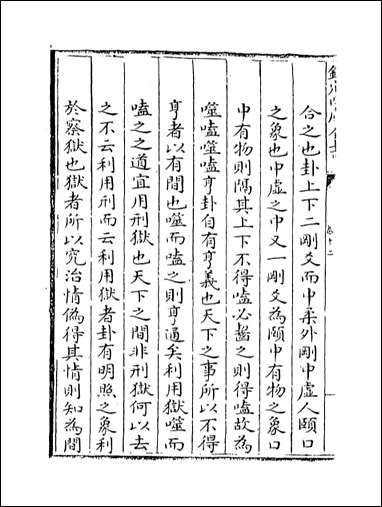 合之也卦上下二剛爻而中柔外剛中虛人頤口
之象也中虛之中又一剛爻為頤中有物之象口
中有物則隔其上下不得嗑必齧之則得嗑故為
噬嗑噬嗑亨卦自有亨義也天下之事所以不得
亨者以有間也噬而嗑之則亨通矣利用獄噬而
嗑之之道宜用刑獄也天下之間非刑獄何以去
之不云利用刑而云利用獄者卦有明照之象利
於察獄也獄者所以究治情偽得其情則知為間